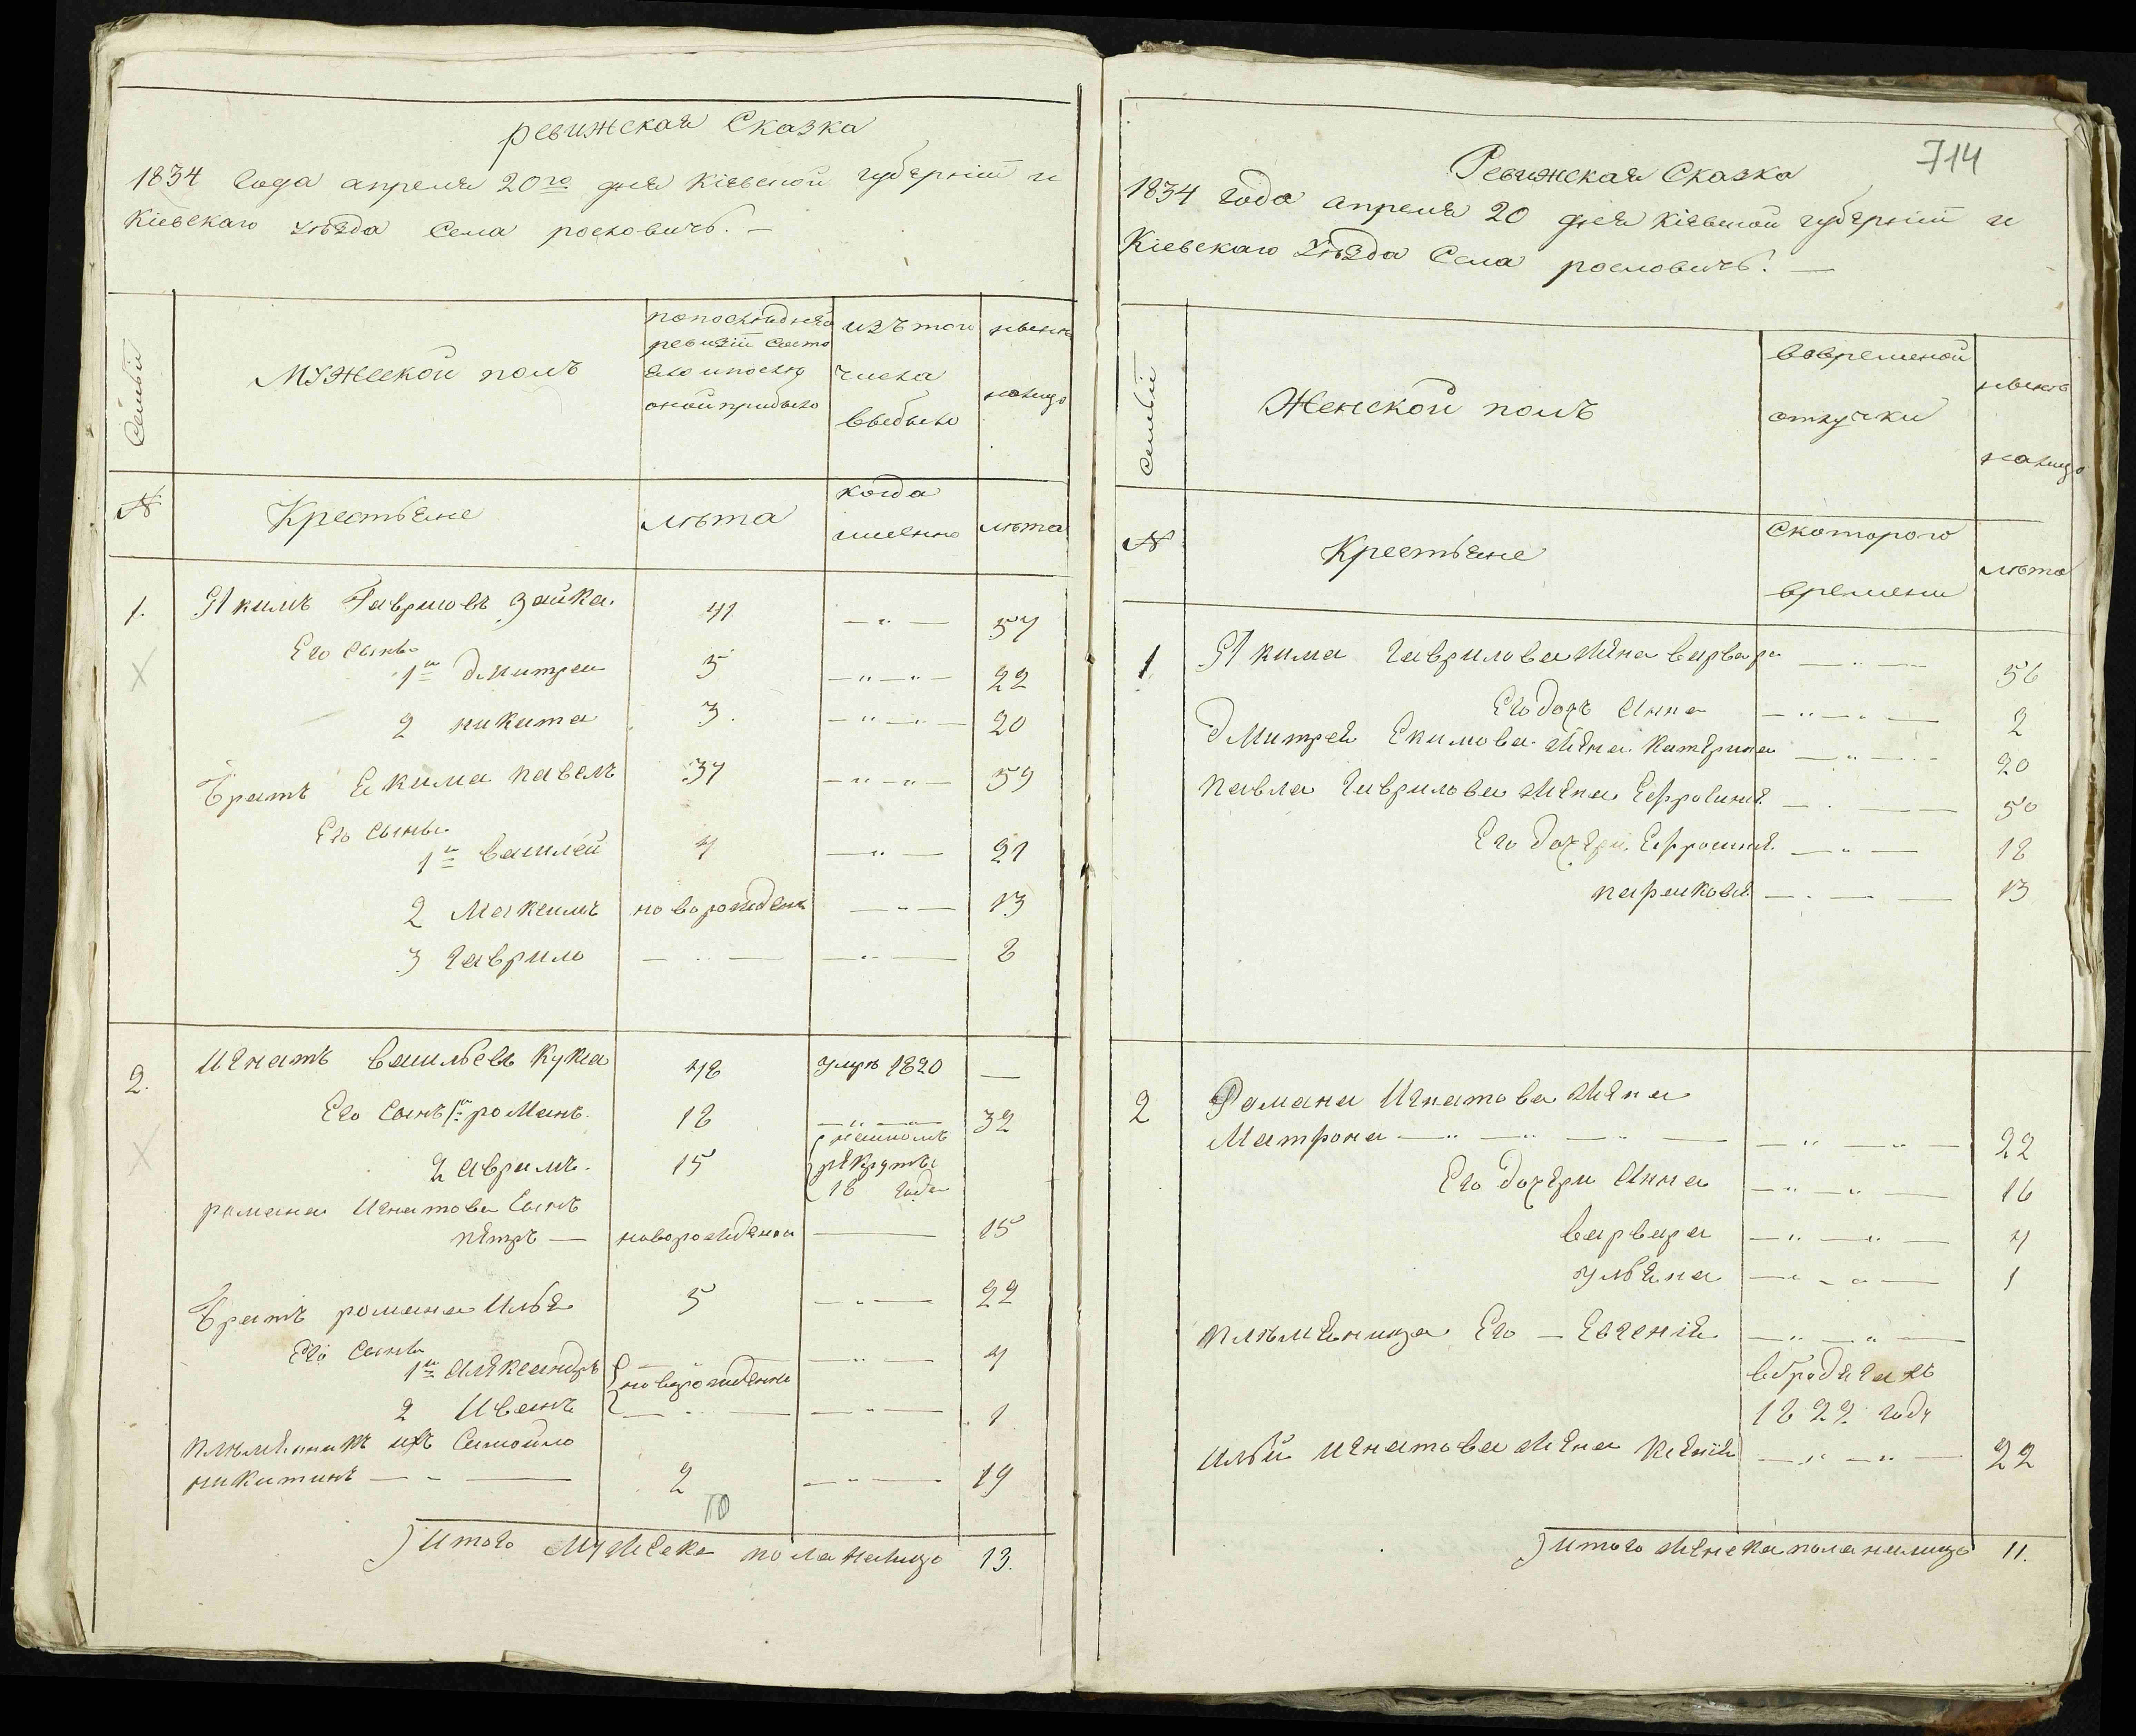 ревижская Сказка
1834 Года апреля 20го дня Кіевской губерніи и
Кіевскаго уѣзда Села росковичъ. —
Семьи
Мужеской полъ
попоследней
ревизіи Состо
яло и послѣ
оной прибыло
изъ того
числа
выбыло
нынѣ
налицо
№
Крестьяне
лѣта
когда
именно
лѣта
1. Якимъ Гавриловъ Зайка. 41 —„— 57
Его сынъ
1й дмитреи 5 —„—„— 22
2 никита 3. —„—„— 20
братъ Екима павелъ 37 —„—„— 59
Его сынъ
1й василей 4 —„— 21
2 Максимъ новорожденъ —„— 13
3 гаврило — „ — —„— 8
2. Игнатъ васильевъ Кука 48 умръ 1820 —
Его Сынъ 1й романъ. 18 —„—„— 32
2 аврамъ. 15
рекрутъ
18 года
романа Игнатова Сынъ
петръ — новорожденои — 15
братъ романа Илья 5 —„— 22
Его сынъ
1й александръ —„— 4
новорожденны
2 Иванъ —„— 1
племенникъ ихъ Самойло
никитинъ — „ — 2 —„— 19
10
Итого Мужеска пола налицо 13.
714
Ревижская Сказка
1834 года апреля 20 дня Кіевской губерніи и
Кіевскаго уѣзда Села рословичъ. —
Семьи
Женской полъ
вовременой
отлучки
нынѣ
налицо
№
Крестьяне
Скоторого
времени
лѣта
1 Якима гаврилова жена варвара —„— 56
Его дочъ Анна —„—„— 2
Дмитрея Екимова жена Катерина —„—„ 20
павла гаврилова жена Ефросинія —„— 50
Его дочери Ефросинія —„— 18
парасковія —„— 13
2 Романа Игнатова жена
Матрона —„—„—„— —„—„— 22
Его дочери Анна —„—„— 16
варвара —„—„— 4
ульяна —„—„— 1
племеница Его — Евгенія —„—„—
вбродягахъ
1822 году
ильи игнатова жена ксенія —„—„— 22
Итого женска пола налицо 11.